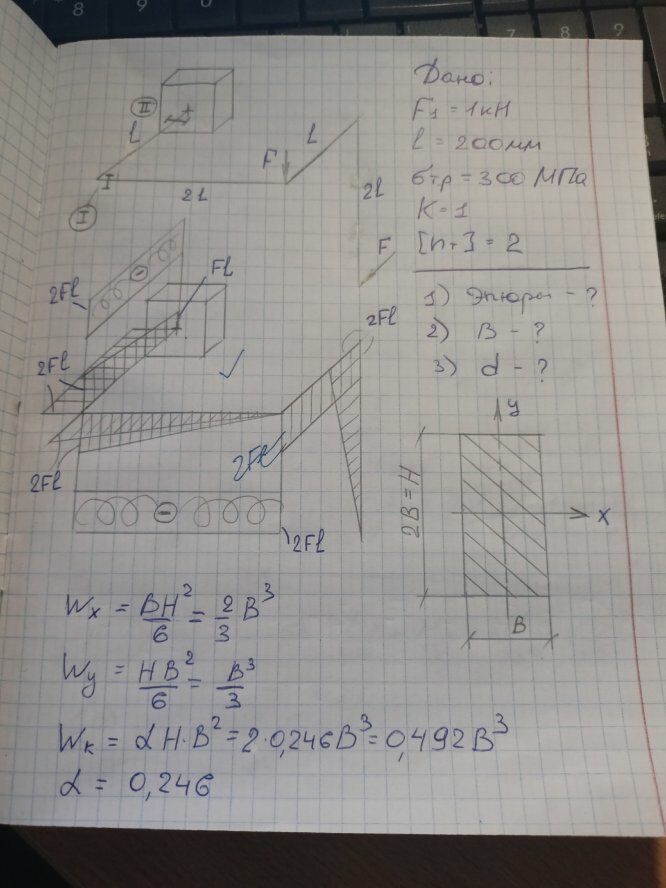 Дано:
F₁ = 1кН
l = 200мм
σтр = 300 МПа
K = 1
[nт] = 2
1) Эпюры - ?
2) B - ?
3) d - ?
II
l
l
F
I
I
2l
2l
F
2Fl
Fl
2Fl
2Fl
2Fl
2Fl
2Fl
y
x
2B = H
B
Wx = BH²/6 = 2/3 B³
Wy = HB²/6 = B³/3
Wк = αH·B² = 2·0,246B³ = 0,492B³
α = 0,246